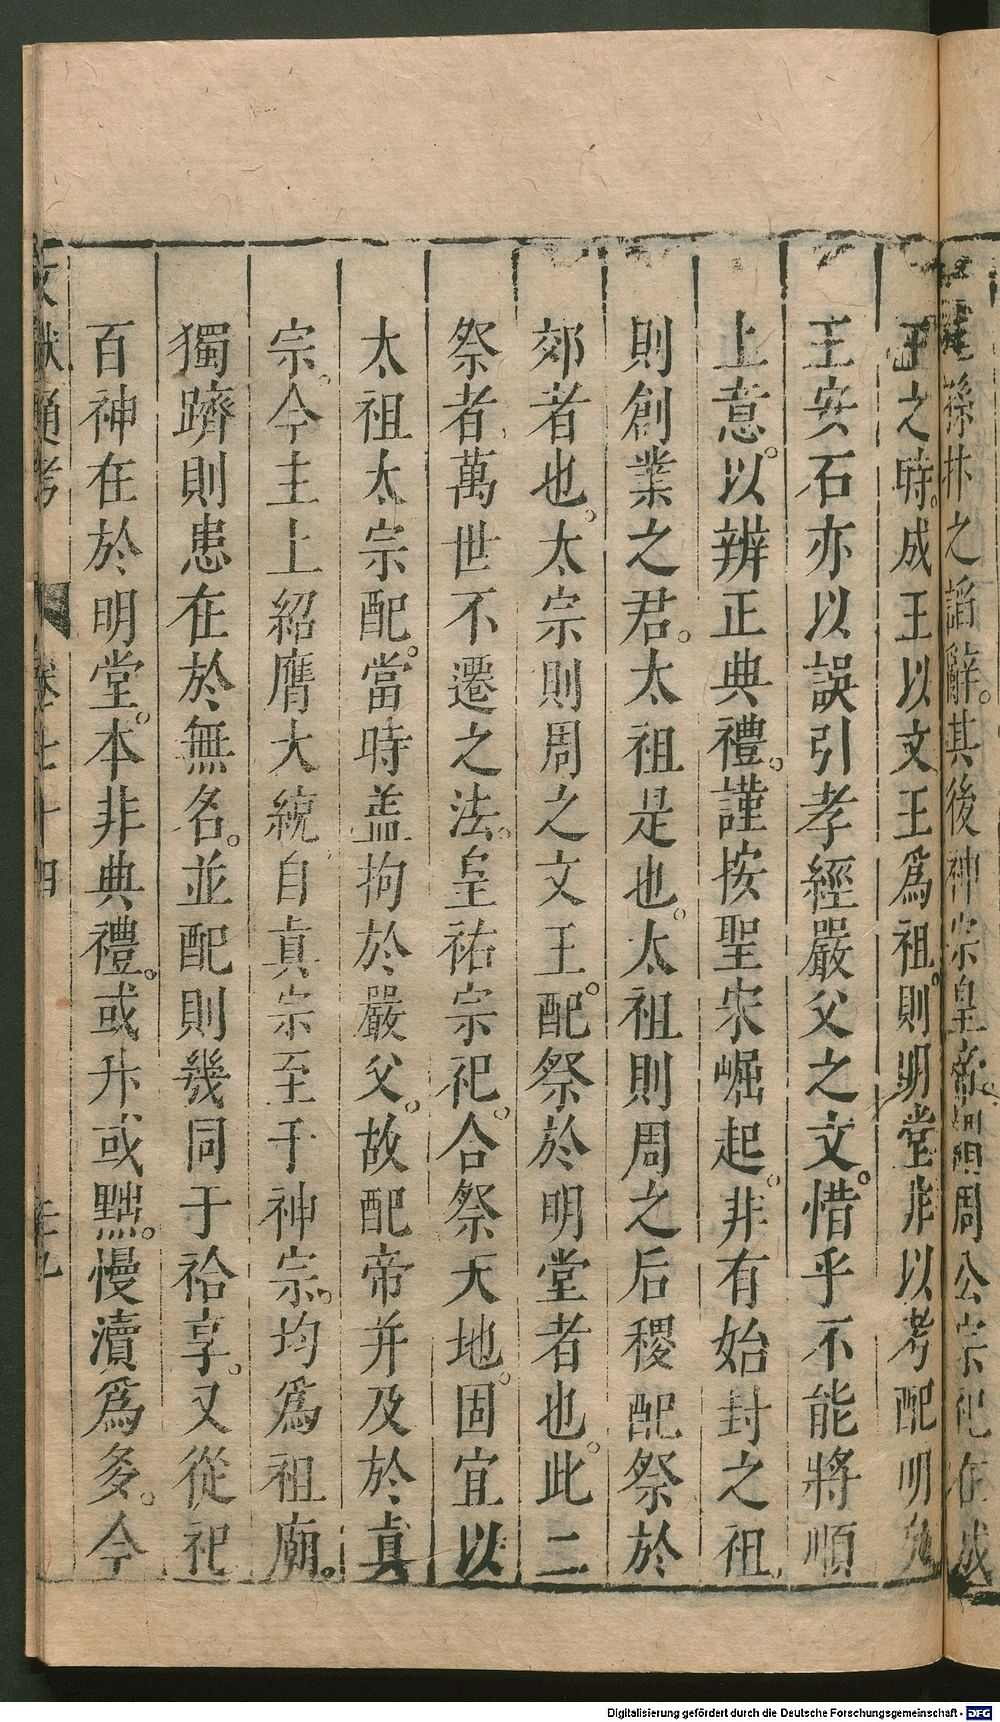 孫抃之諂辭。其後神宗皇帝嘗問周公宗祀在成
王之時。成王以文王爲祖。則明堂非以考配明矣
王安石亦以誤引孝經嚴父之文。惜乎不能將順
上意。以辨正典禮。謹按聖宋崛起。非有始封之祖。
則創業之君。太祖是也。太祖則周之后稷配祭於
郊者也。太宗則周之文王。配祭於明堂者也。此二
祭者。萬世不遷之法。皇祐宗祀。合祭天地。固宜以
太祖太宗配。當時盖拘於嚴父。故配帝并及於真
宗。今主上紹膺大統。自真宗至于神宗。均爲祖廟。
獨躋則患在於無名。並配則幾同于祫享。又從祀
百神在於明堂。本非典禮。或升或黜。慢瀆爲多。今
文獻通考 卷七十四
Digitalisierung gefördert durch die Deutsche Forschungsgemeinschaft - DFG